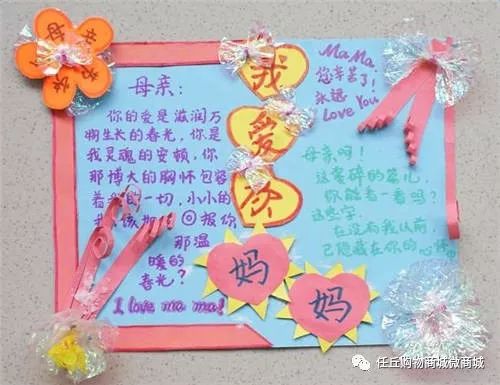 母亲:
你的爱是滋润万
物生长的春光,你是
我灵魂的安顿,你
那博大的胸怀包容
着我的一切,小小的
该 回报你
那温
暖的
春光?
I love ma ma!
我
爱
你
妈
妈
MaMa
您辛苦了!
永远
Love You
母亲啊!
这零碎的篇儿,
你能看一看吗?
这些字,
在没有我以前,
已隐藏在你的心怀
任丘购物商城微商城